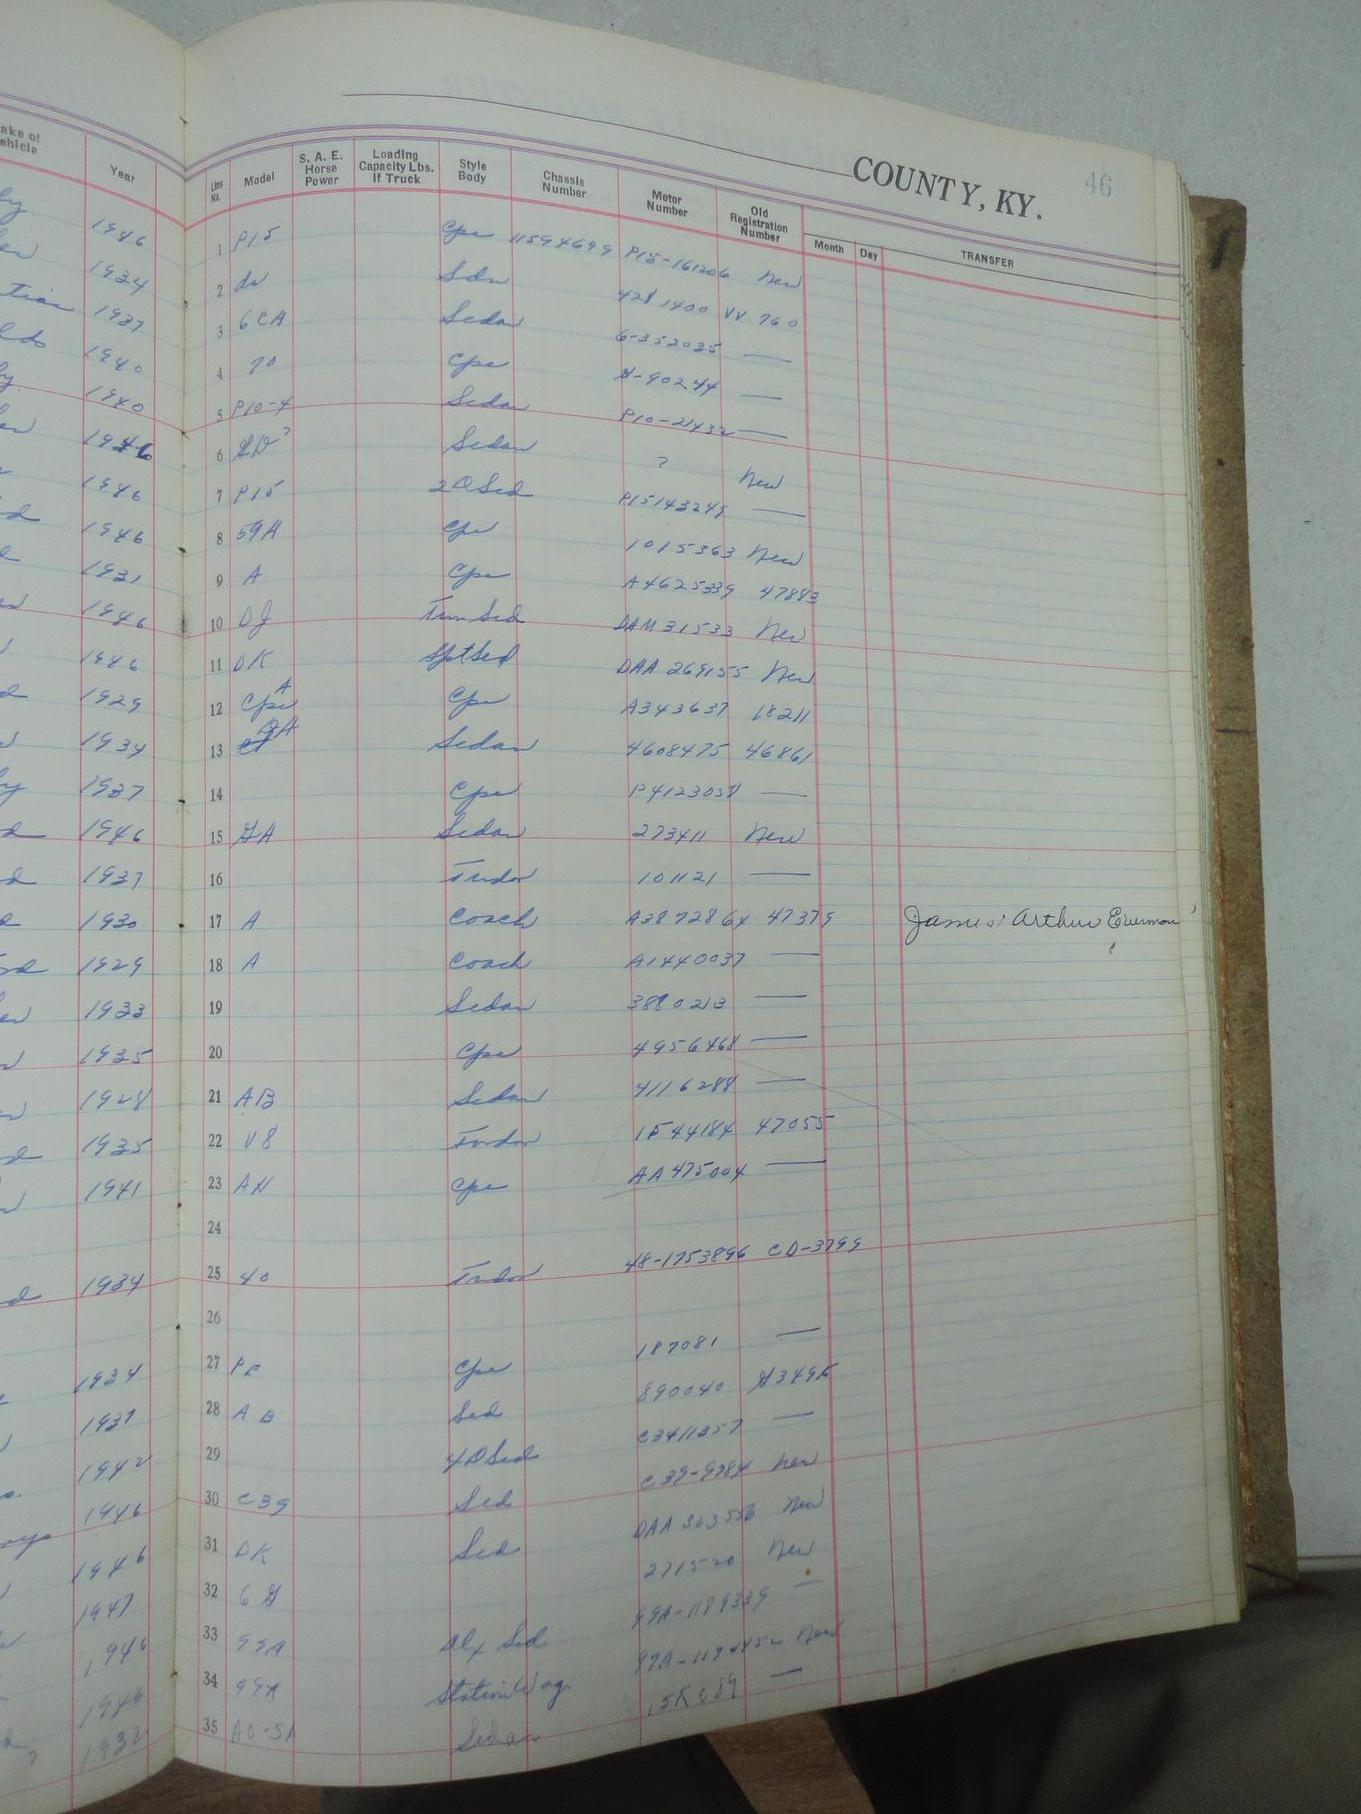 COUNTY, KY. 46
Year
Line No. Model S. A. E. Horse Power Loading Capacity Lbs. If Truck Style Body Chassis Number Motor Number Old Registration Number Month Day TRANSFER
1946 1 P15 Cpe 11594699 P15-161206 New
1934 2 do Sdn 4281400 VV 760
1937 3 6CA Sedan 6-352035 —
1940 4 70 Cpe —
1940 5 P10-4 Sedan P10-21432 —
1946 6 Sedan ? New
1946 7 P15 2DSed P15143249 —
1946 8 59A Cpe 1015363 New
1931 9 A Cpe A4625339 47883
1946 10 DJ Twn Sed DAM31533 New
1946 11 DK Spt Sed DAA 269155 New
1929 12 Cpe A Cpe A343637 18211
1934 13 Sedan 4608475 46861
1937 14 Cpe P4123058 —
1946 15 Sedan 273411 New
1937 16 Tudor 101121 —
1930 17 A Coach A3872864 47379 James Arthur Everman
1929 18 A Coach A1440037 —
1933 19 Sedan 3880213 —
1935 20 Cpe 4956468 —
1928 21 AB Sedan 4116288 —
1935 22 V8 Tudor 47055
1941 23 AH Cpe AA475004 —
24
1934 25 40 Tudor 48-1753896 CD-3799
26
1934 27 PE Cpe 187081 —
1937 28 AB Sed 890040
1942 29 4DSed C3411357 —
1946 30 C39 Sed C39-9784 New
1946 31 DK Sed DAA 363556 New
1947 32 271520 New
1946 33 99A Dlx Sed 99A-1189339 —
1946 34 99A Station Wag. New
1932 35 AO-5A Sedan 15K089 —